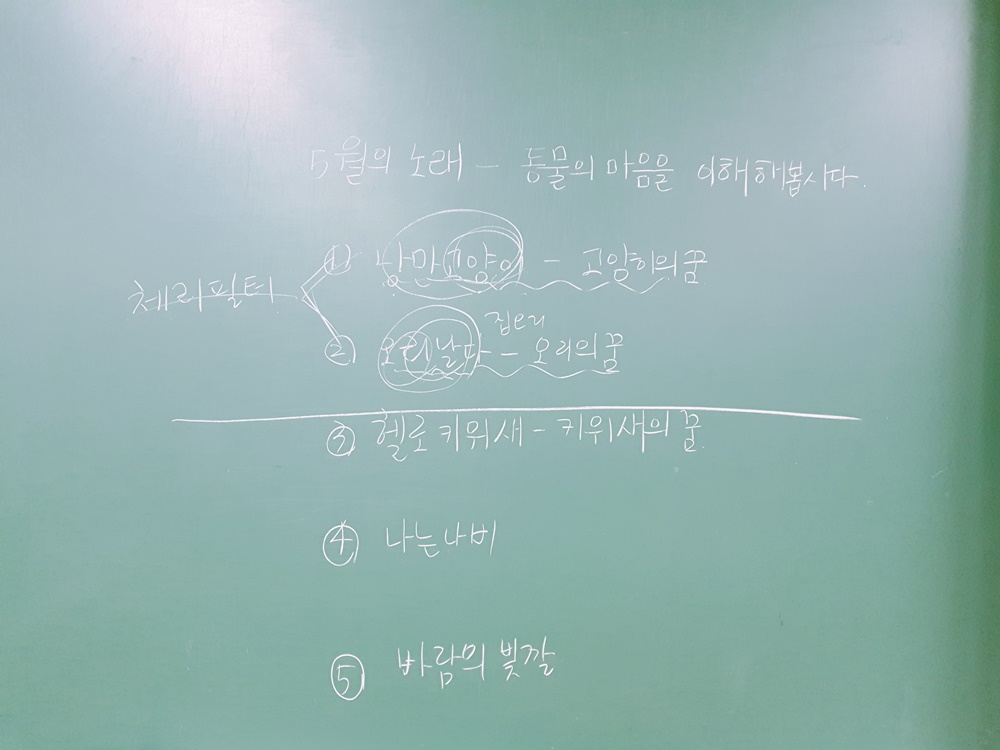 5월의 노래 - 동물의 마음을 이해해봅시다.
① 낭만고양이 - 고양이의 꿈
체리필터
집오리
② 오리날다 - 오리의 꿈
③ 헬로키위새 - 키위새의 꿈
④ 나는나비
⑤ 바람의 빛깔